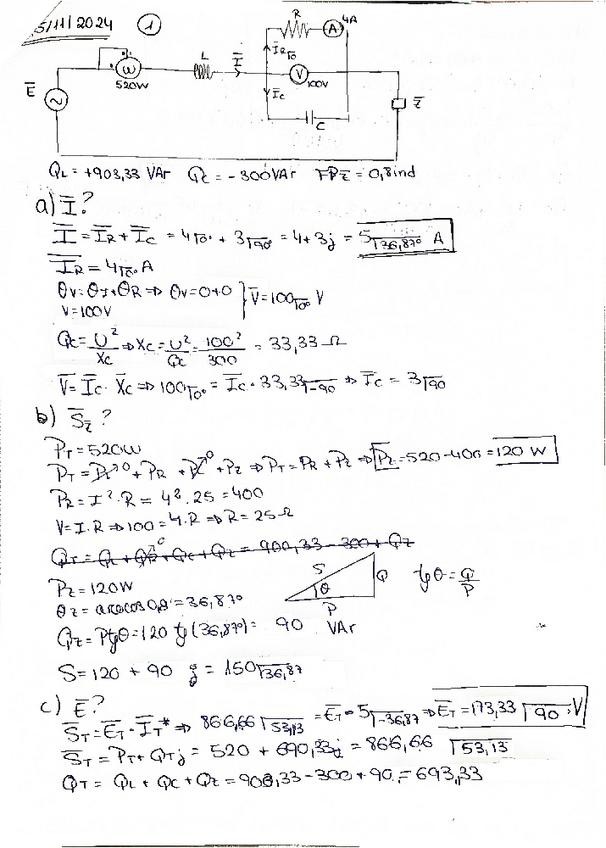 5/11/2024 1
R A 4A
I̅ I̅R 0°
E̅ W 520W L V 100V Z̅
I̅c
C
QL = +903,33 VAr Qc = -300VAr FPz̅ = 0,8ind
a) I̅?
I̅ = I̅R + I̅c = 4∠0° + 3∠90° = 4+3j = 5∠36,87° A
I̅R = 4∠0° A
θV = θI + θR ⇒ θV = 0+0 } V̅ = 100∠0° V
V = 100V
Qc = U²/Xc ⇒ Xc = U²/Qc = 100²/300 = 33,33 Ω
V̅ = I̅c · X̅c ⇒ 100∠0° = I̅c · 33,33∠-90 ⇒ I̅c = 3∠90
b) S̅z̅?
PT = 520W
PT = PL⁰ + PR + Pc⁰ + Pz ⇒ PT = PR + Pz ⇒ Pz = 520-400 = 120 W
PR = I²·R = 4²·25 = 400
V = I·R ⇒ 100 = 4·R ⇒ R = 25 Ω
QT = QL + QR⁰ + Qc + Qz = 900,33 - 300 + Qz
Pz = 120W S Q tgθ = Q/P
θz = arccos 0,8 = 36,87° θ P
Qz = Ptgθ = 120 tg(36,87°) = 90 VAr
S = 120 + 90 j = 150∠36,87
c) E̅?
S̅T = E̅T · I̅T* ⇒ 866,66∠53,13 = E̅T · 5∠-36,87 ⇒ E̅T = 173,33∠90° V
S̅T = PT + QTj = 520 + 690,33j = 866,66∠53,13
QT = QL + Qc + Qz = 903,33 - 300 + 90 = 693,33